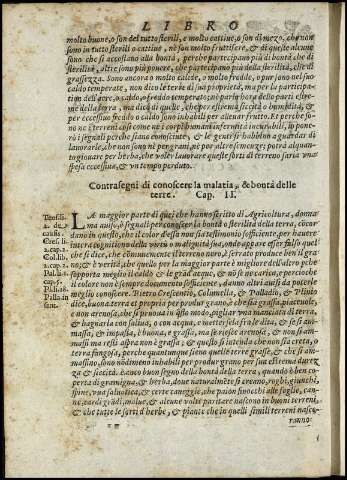 LIBRO
molto buono, ò son del tutto sterili, e molto cattiue, ò son di mezo, che non
sono in tutto sterili o cattiue, nè son molto fruttifere, & di queste alcune
sono che si accostano alla bontà, perche partecipano più di bontà che di
sterilità, altre sono più pouere, che partecipano più della sterilità, che di
grassezza. Sono ancora o molto calde, o molto fredde, o pur sono nel suo
caldo temperate, non dico le terre di sua proprietà, ma per la participa
tion dell'aere, o caldo, o freddo temperato; nè parlo hora delle parti estre
me della terra, ma dico di quelle, che per estrema siccità o humidità, &
per eccessiuo freddo o caldo sono inhabili per alleuar frutto. Et perche so
no ne i terreni così come nè i corpi humani infermità incurabili, si pone
rò i segnali perche siano conosciute, & le genti si habbiano a guardar di
lauorarle, che non sono nè per grani, nè per altre semenze; potrà alquan
to giouare per herba, che voler lauorare queste sorti di terreno saria vna
spesa eccessiua, & vn tempo perduto.
Contrasegni di conoscere la malatia, & bontà delle
terre. Cap. II.
Teof. li.
2. de
causis.
Cres. li.
2. cap. 2.
Col. lib.
2. cap. 2.
Pal. li. 1.
cap. 5.
Plin.
LA maggior parte di quei che hanno scritto di Agricoltura,
a conoscer la bontà o sterilità della terra,
dano in questo, che il color d'essa non sia testimonio sofficiente, per hauere
intera cognitione della virtù o malignità sua, onde appare esser falso quel
che si dice, che communemente il terreno nero, è ferrato produce ben il gra
no, & è verità che quello per la maggior parte è migliore dell'altro perche
sopporta meglio il caldo & le grād'acque, & nō se ne carica, e perciò che
il colore non è sempre documento sofficiente, danno altri auisi da poterle
meglio conoscere. Pietro Crescentio, Columella, & Palladio, & Plinio
dice, buona terra et propria per produr grano, è che sia grassa, piaceuole,
e non aspra, che si prouua in q̄sto modo, pigliar vna manciata di terra,
& bagnarla con saliua, o con acqua, e metterse la fra le dita, & se si am-
massa, & impasta, è buona, e grassa, ma se resta arenosa, & non si am-
massi ma resti aspra non è grassa, & questo si intenda che non sia creta, o
terra fangosa, perche quantunque siano quelle terre grasse, & che si am-
massino, sono nōdimeno inhabili per produr grano per sua estrema durez
za & siccità. Euui buon segno della bontà della terra, quando è ben co-
perta di gramigna, & herba, doue naturalmēte si creano, roghi, giunchi,
spine, vua saluatica, & certe canuggie, che paion finocchi alle foglie, can-
ne, cardi grādi, malue, & alcune volte paritarie nascono in buoni terreni,
& che tutte le sorti d'herbe, & piante che in quelli simili terreni nasce-
ranno